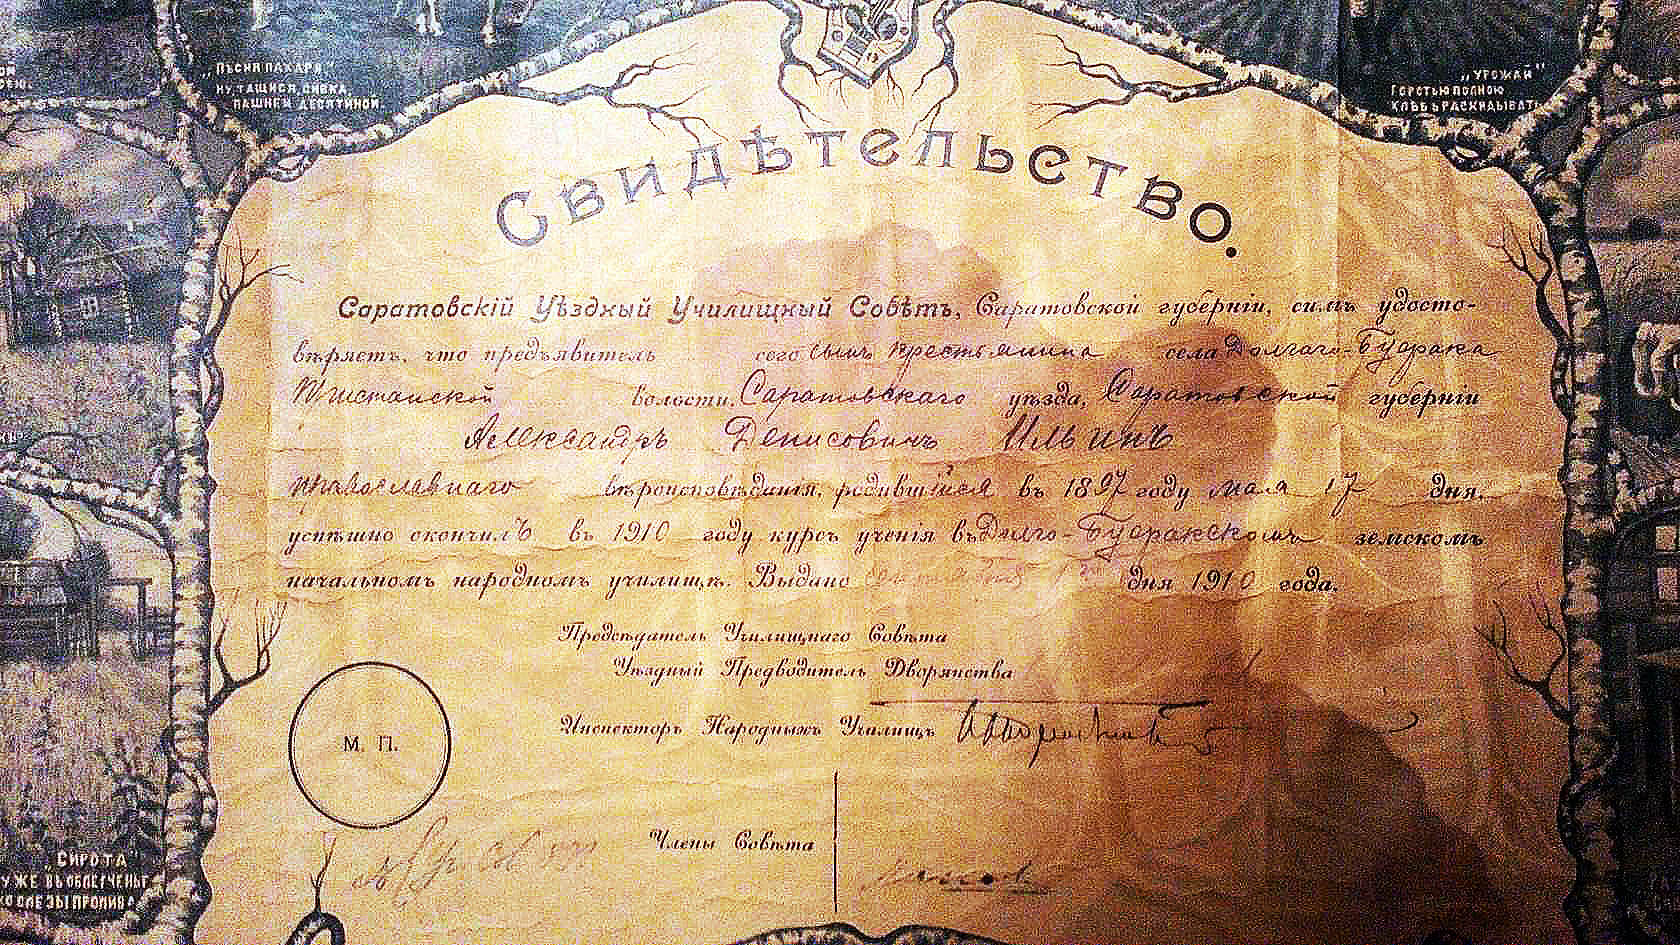 „ПѢСНЯ ПАХАРЯ"
НУ, ТАЩИСЯ, СИВКА,
ПАШНЕЙ ДЕСЯТИНОЙ.
„УРОЖАЙ"
ГОРСТЬЮ ПОЛНОЮ
ХЛѢБЪ РАСКИДЫВАТЬ
Свидѣтельство.
Саратовскій Уѣздный Училищный Совѣтъ, Саратовской губерніи, симъ удосто-
вѣряетъ, что предъявитель сего сынъ крестьянина села Долгаго-Буерака
Пристанской волости, Саратовскаго уѣзда, Саратовской губерніи
Александръ Денисовичъ Ильинъ
православнаго вѣроисповѣданія, родившійся въ 1897 году мая 17 дня,
успѣшно окончилъ въ 1910 году курсъ ученія въ Долго-Буеракскомъ земскомъ
начальномъ народномъ училищѣ. Выдано дня 1910 года.
Предсѣдатель Училищнаго Совѣта
Уѣздный Предводитель Дворянства
Инспекторъ Народныхъ Училищъ
М. П.
Члены Совѣта
„СИРОТА"
УЖЕ ВЪ ОБЛЕГЧЕНЬЕ